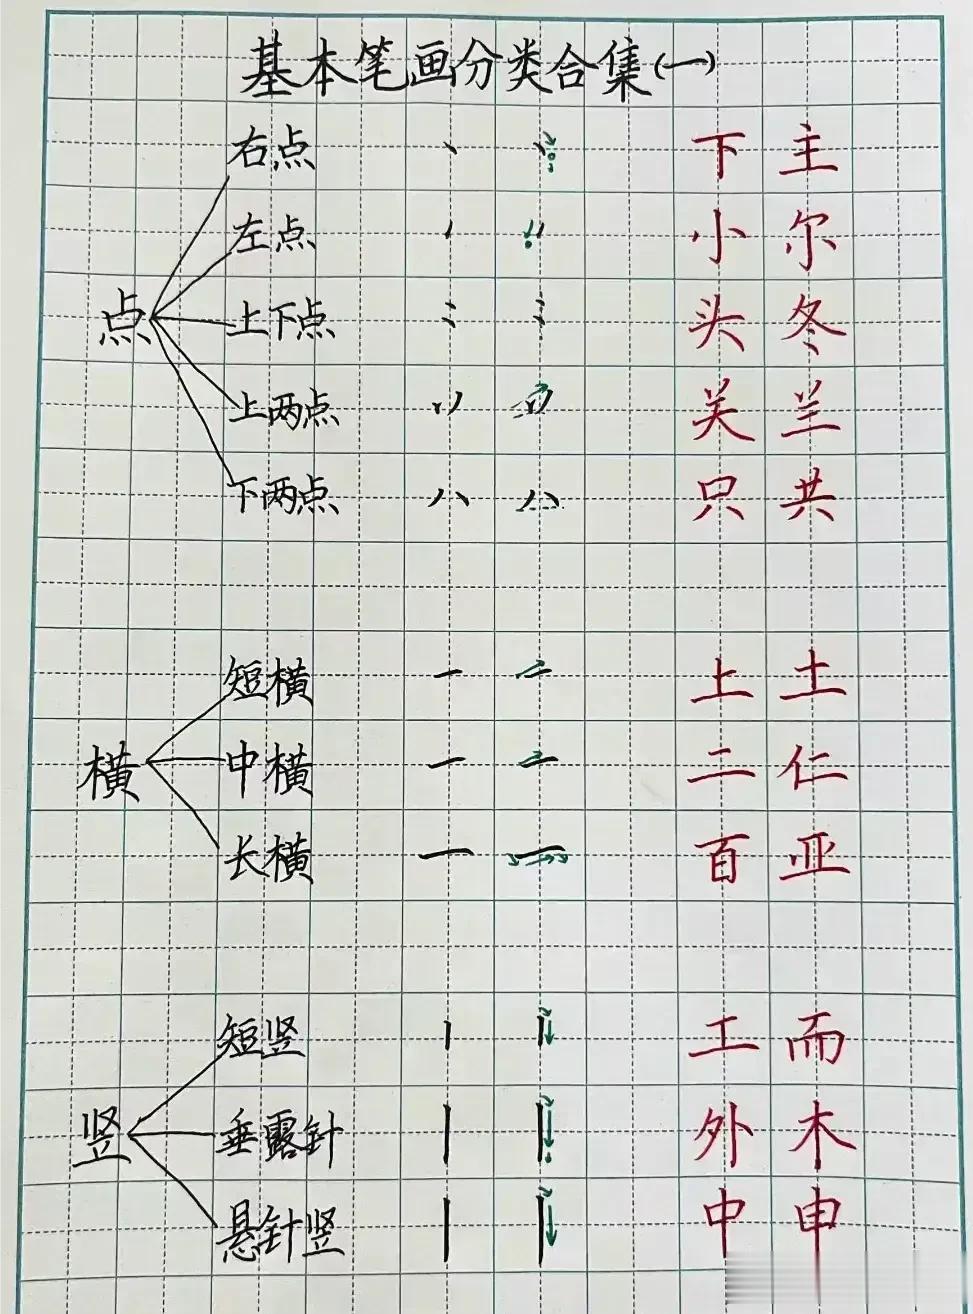 基本笔画分类合集(一)
右点 下 主
左点 小 尔
点 上下点 头 冬
上两点 关 兰
下两点 只 共
短横 上 土
横 中横 二 仁
长横 百 亚
短竖 工 而
竖 垂露针 外 木
悬针竖 中 申